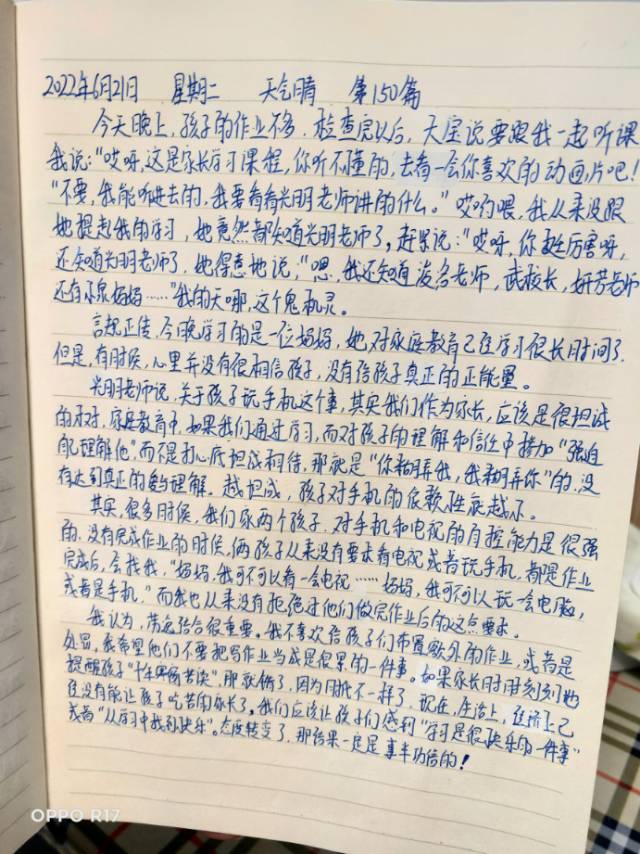 2022年6月21日 星期二 天气晴 第150篇
今天晚上，孩子的作业不多，检查完以后，天宝说要跟我一起听课
我说："哎呀，这是家长学习课程，你听不懂的，去看一会你喜欢的动画片吧！
"不要，我能听进去的，我要看看光明老师讲的什么。"哎哟喂，我从来没跟
她提起我的学习，她竟然都知道光明老师了，赶紧说："哎呀，你挺厉害呀，
还知道光明老师了，她得意地说，"嗯，我还知道 老师，武校长，妍芳老师
还有 妈妈……"我的天哪，这个鬼机灵。
言归正传，今晚学习的是一位妈妈，她对家庭教育已经学习很长时间了，
但是，有时候，心里并没有很相信孩子，没有给孩子真正的正能量。
光明老师说，关于孩子玩手机这个事，其实我们作为家长，应该是很坦诚
的面对，家庭教育中，如果我们通过学习，而对孩子的理解和信任中掺加"强迫
自己理解他"，而不是打心底坦诚相待，那就是"你糊弄我，我糊弄你"的，没
有达到真正的爱与理解。越坦诚，孩子对手机的依赖性就越小。
其实，很多时候，我们家两个孩子，对手机和电视的自控能力是很强
的，没有完成作业的时候，俩孩子从来没有要求看电视或者玩手机，都是作业
完成后，会找我，"妈妈，我可不可以看一会电视……妈妈，我可不可以玩一会电脑，
或者是手机，"而我也从来没有拒绝过他们做完作业后的这点要求。
我认为，劳逸结合很重要。我不喜欢给孩子们布置额外的作业，或者是
处罚，我希望他们不要把写作业当成是很累的一件事。如果家长时时刻刻地
提醒孩子"十年寒窗苦读"，那就错了，因为时代不一样了，现在，生活上，经济上已
经没有能让孩子吃苦的家长了。我们应该让孩子们感到"学习是很快乐的一件事"
或者"从学习中找到快乐"。态度转变了，那结果一定是事半功倍的！
OPPO R17